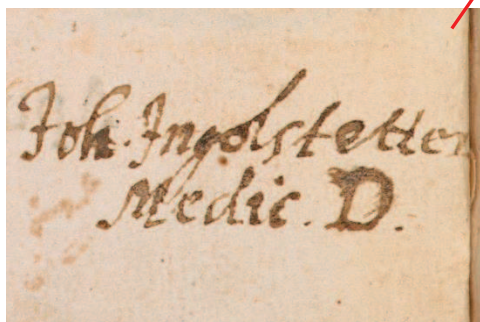 Joh. Ingolstetter
Medic. D.